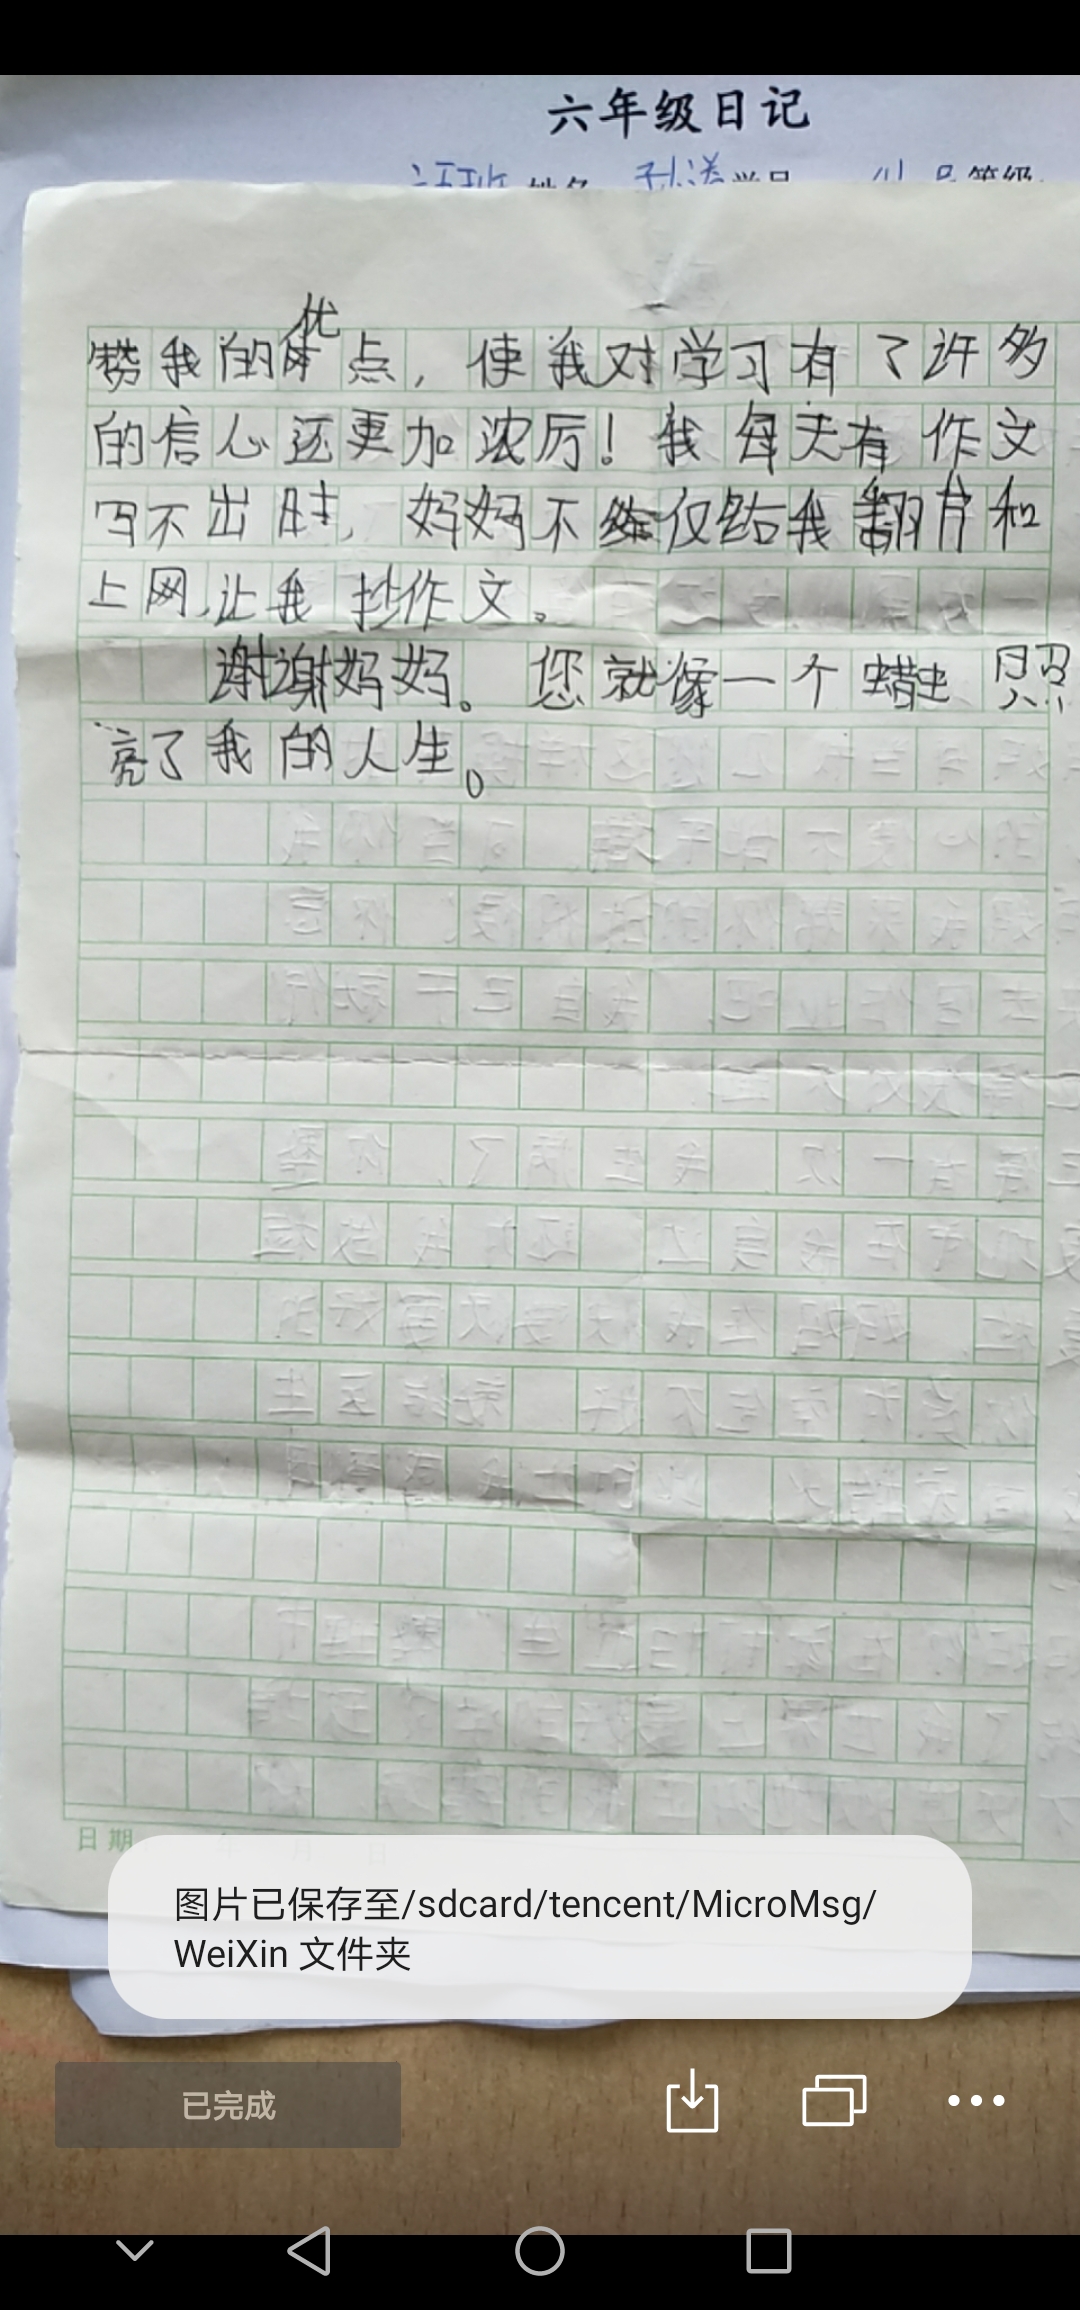 六年级日记
班 姓名 孙涛 学号 号 等级
赞我的优点，使我对学习有了许多
的信心还更加浓厉！我每天有作文
写不出时，妈妈不仅给我翻书和
上网，让我抄作文。
谢谢妈妈。您就像一个蜡虫照
亮了我的人生。
日期 年 月 日
图片已保存至/sdcard/tencent/MicroMsg/
WeiXin 文件夹
已完成